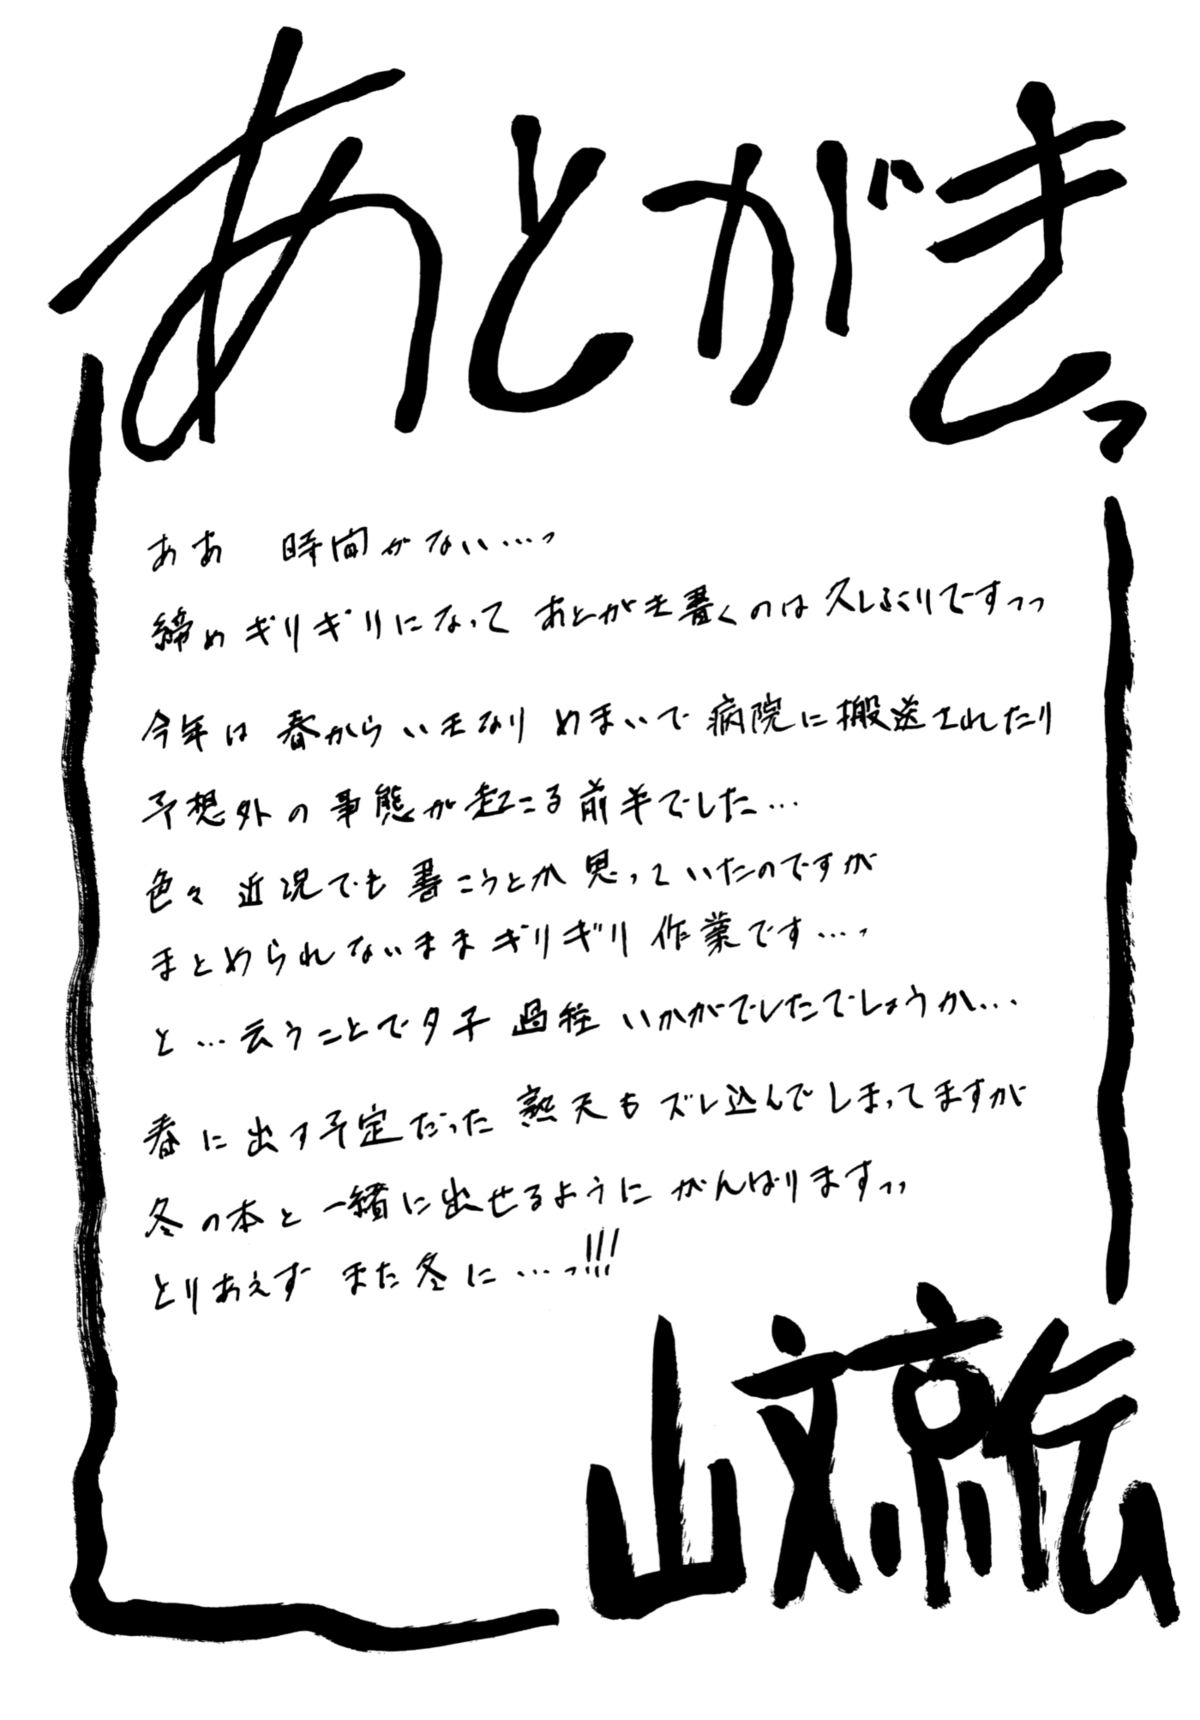 あとがきっ
ああ 時間がない…っ
締めギリギリになって あとがき書くのは久しぶりですっっ
今年は 春からいきなり めまいで 病院に搬送されたり
予想外の事態が起こる前半でした…
色々 近況でも書こうとか思っていたのですが
まとめられないまま ギリギリ作業です…っ
と…云うことで夕子 過程 いかがでしたでしょうか…
春に出す予定だった 熟天も ズレ込んでしまってますが
冬の本と 一緒に出せるように がんばりますっっ
とりあえず また冬に…っ!!!
山文京伝